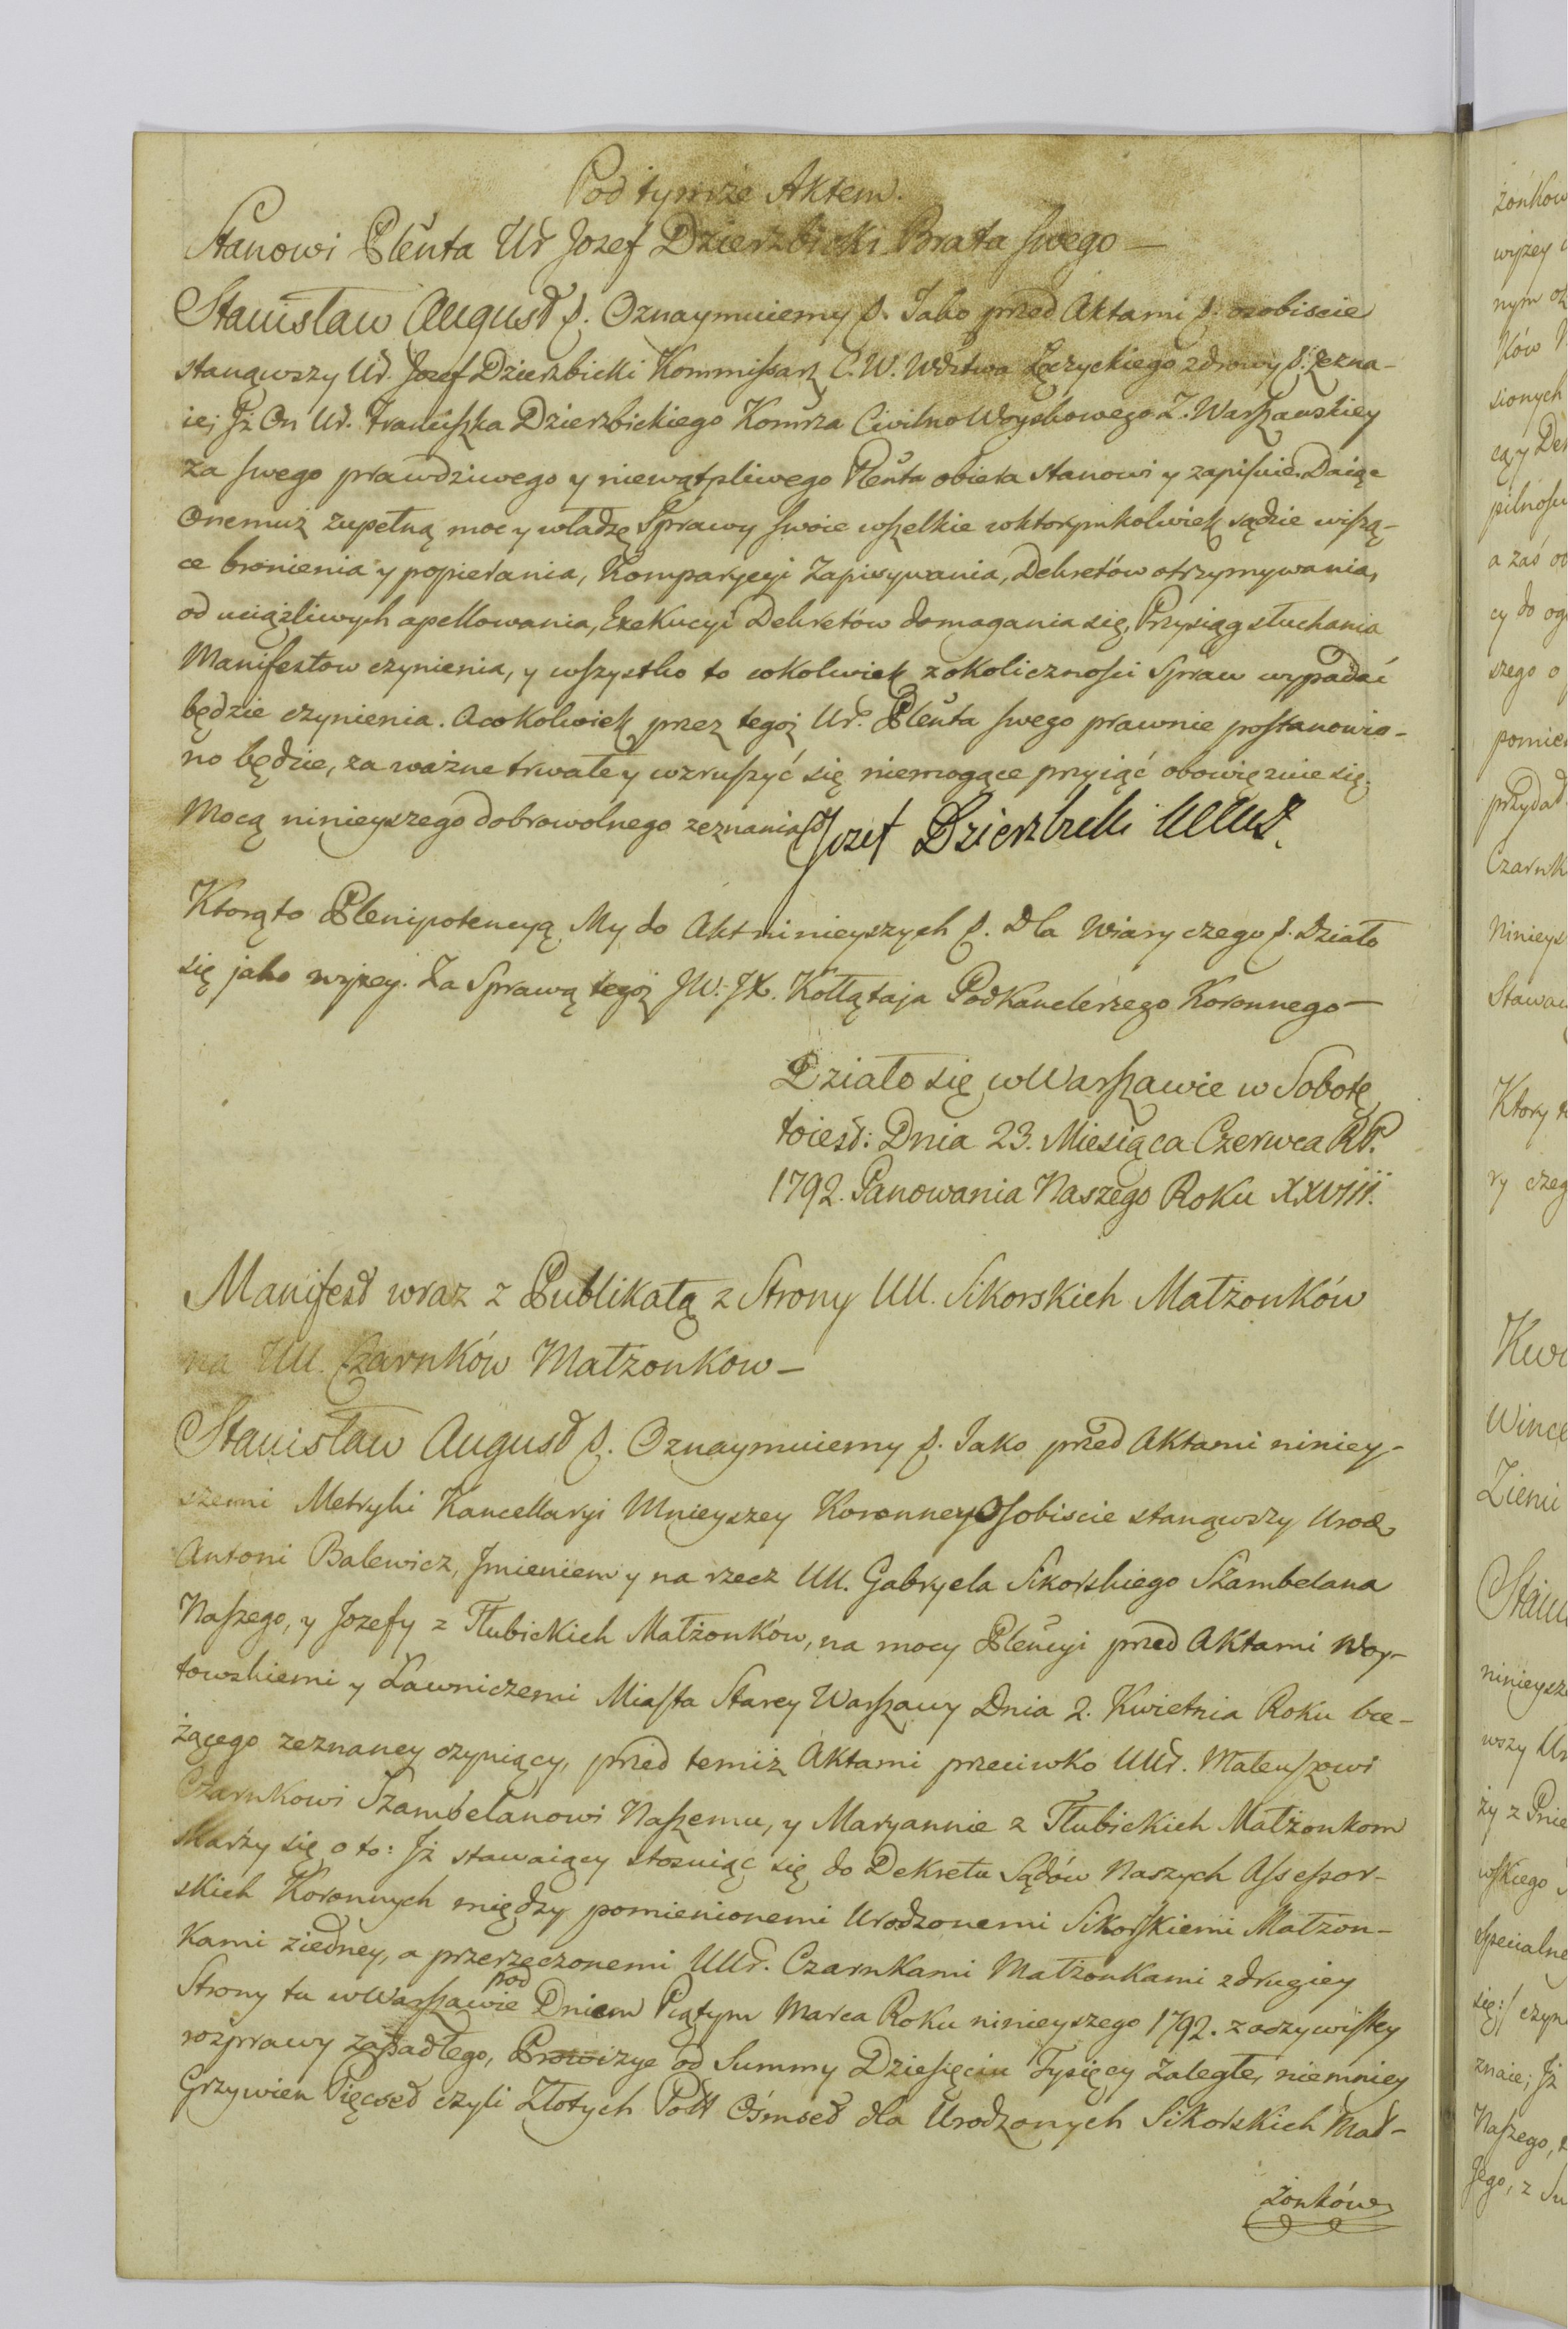 Pod tymże Aktem.
Stanowi Plenta Ur Jozef Dzierzbicki Brata swego —
Stanisław August p. Oznaymuiemy p. Jako przed Aktami p. osobiscie
stanąwszy Ur. Jozef Dzierzbicki Kommissarz C. W. Wdztwa Łęczyckiego zdrowy p. zezna-
ie; Jż On Ur. Franciszka Dzierzbickiego Komrza Civilno Woyskowego Z. Warszawskiey
za swego prawdziwego y niewątpliwego Plenta obiera stanowi y zapisuie. Daiąc
Onemuż zupełną moc y władzę Sprawy swoie wszelkie w ktorymkolwiek sądzie wiszą-
ce bronienia y popierania, Komparycyi Zapisywania, Dekretów otrzymywania,
od uciążliwych apellowania, Exekucyi Dekretów domagania się, Przysiąg słuchania
Manifestow czynienia, y wszystko to cokolwiek z okoliczności Spraw wypadać
będzie czynienia. A cokolwiek przez tegoż Ur. Plenta swego prawnie postanowio-
no będzie, za ważne trwałe y wzruszyć się niemogące przyiąć obowięzuie się.
Mocą ninieyszego dobrowolnego zeznania Jozef Dzierzbicki
Ktorą to Plenipotencyą My do Akt ninieyszych p. Dla Wiary czego p. Działo
się jako wyżey. Za Sprawą tegoż JW. JX. Kołłątaja PodKanclerzego Koronnego —
Działo się w Warszawie w Sobotę
toiest: Dnia 23. Miesiąca Czerwca RP.
1792. Panowania Naszego Roku XXVIII.
Manifest wraz z Publikatą z Strony UU. Sikorskich Małżonków
na UU. Czarnków Małżonkow —
Stanisław August p. Oznaymuiemy p. Jako przed Aktami niniey-
szemi Metryki Kancellaryi Mnieyszey Koronney Osobiscie stanąwszy Urod
Antoni Balewicz, Jmieniem y na rzecz UU. Gabryela Sikorskiego Szambelana
Naszego, y Jozefy z Tłubickich Małżonków, na mocy Plencyi przed Aktami Woy-
towskiemi y Ławniczemi Miasta Starey Warszawy Dnia 2. Kwietnia Roku bie-
żącego zeznaney czyniący, przed temiż Aktami przeciwko UUr. Mateuszowi
Czarnkowi Szambelanowi Naszemu, y Maryannie z Tłubickich Małżonkom
skarży się o to: Jż stawaiący stosuiąc się do Dekretu Sądów Naszych Assessor-
skich Koronnych między pomienionemi Urodzonemi Sikorskiemi Małżon-
kami ziedney, a przerzeczonemi UUr. Czarnkami Małżonkami z drugiey
Strony tu w Warszawie pod Dniem Piątym Marca Roku ninieyszego 1792. z oczywistey
rozprawy zapadłego, Prowizye od Summy Dziesięciu Tysięcy zaległe, niemniey
Grzywien Pięcset czyli Złotych Pol Ośmset dla Urodzonych Sikorskich Mał-
żonków